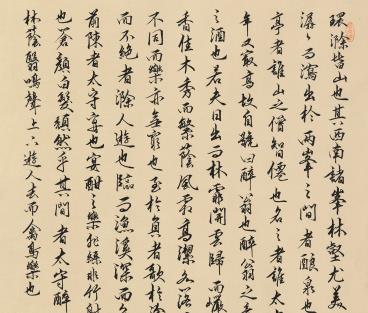 環滁皆山也其西南諸峯林壑尤美
潺潺而瀉出於兩峯之間者釀泉也
亭者誰山之僧智僊也名之者誰太
年又最高故自號曰醉翁也醉翁之
之酒也若夫日出而林霏開雲歸而巖
香佳木秀而繁蔭風霜高潔水落
不同而樂亦無窮也至於負者歌於
而不絕者滁人遊也臨而漁溪深而
前陳者太守宴也宴酣之樂非絲非竹射
也蒼顏白髮頹然乎其間者太守醉
林蔭翳鳴聲上下遊人去而禽鳥樂也